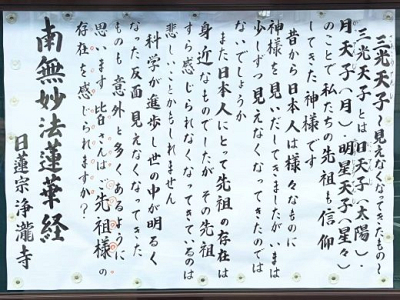 三光天子 見えなくなってきたもの〜
三光天子とは日天子(太陽)・
月天子(月)・明星天子(星々)
のことで私たちの先祖も信仰
してきた神様です
昔から日本人は様々なものに
神様を見いだしてきましたがいまは
少しずつ見えなくなってきたのでは
ないでしょうか
また日本人にとって先祖の存在は
身近なものでしたがその先祖
すら感じられなくなってきているのは
悲しいことかもしれません
科学が進歩し世の中が明るく
なった反面見えなくなってきた
ものも意外と多くあるように
思います 皆さんは、先祖様の
存在を感じられますか?
南無妙法蓮華経
日蓮宗浄瀧寺